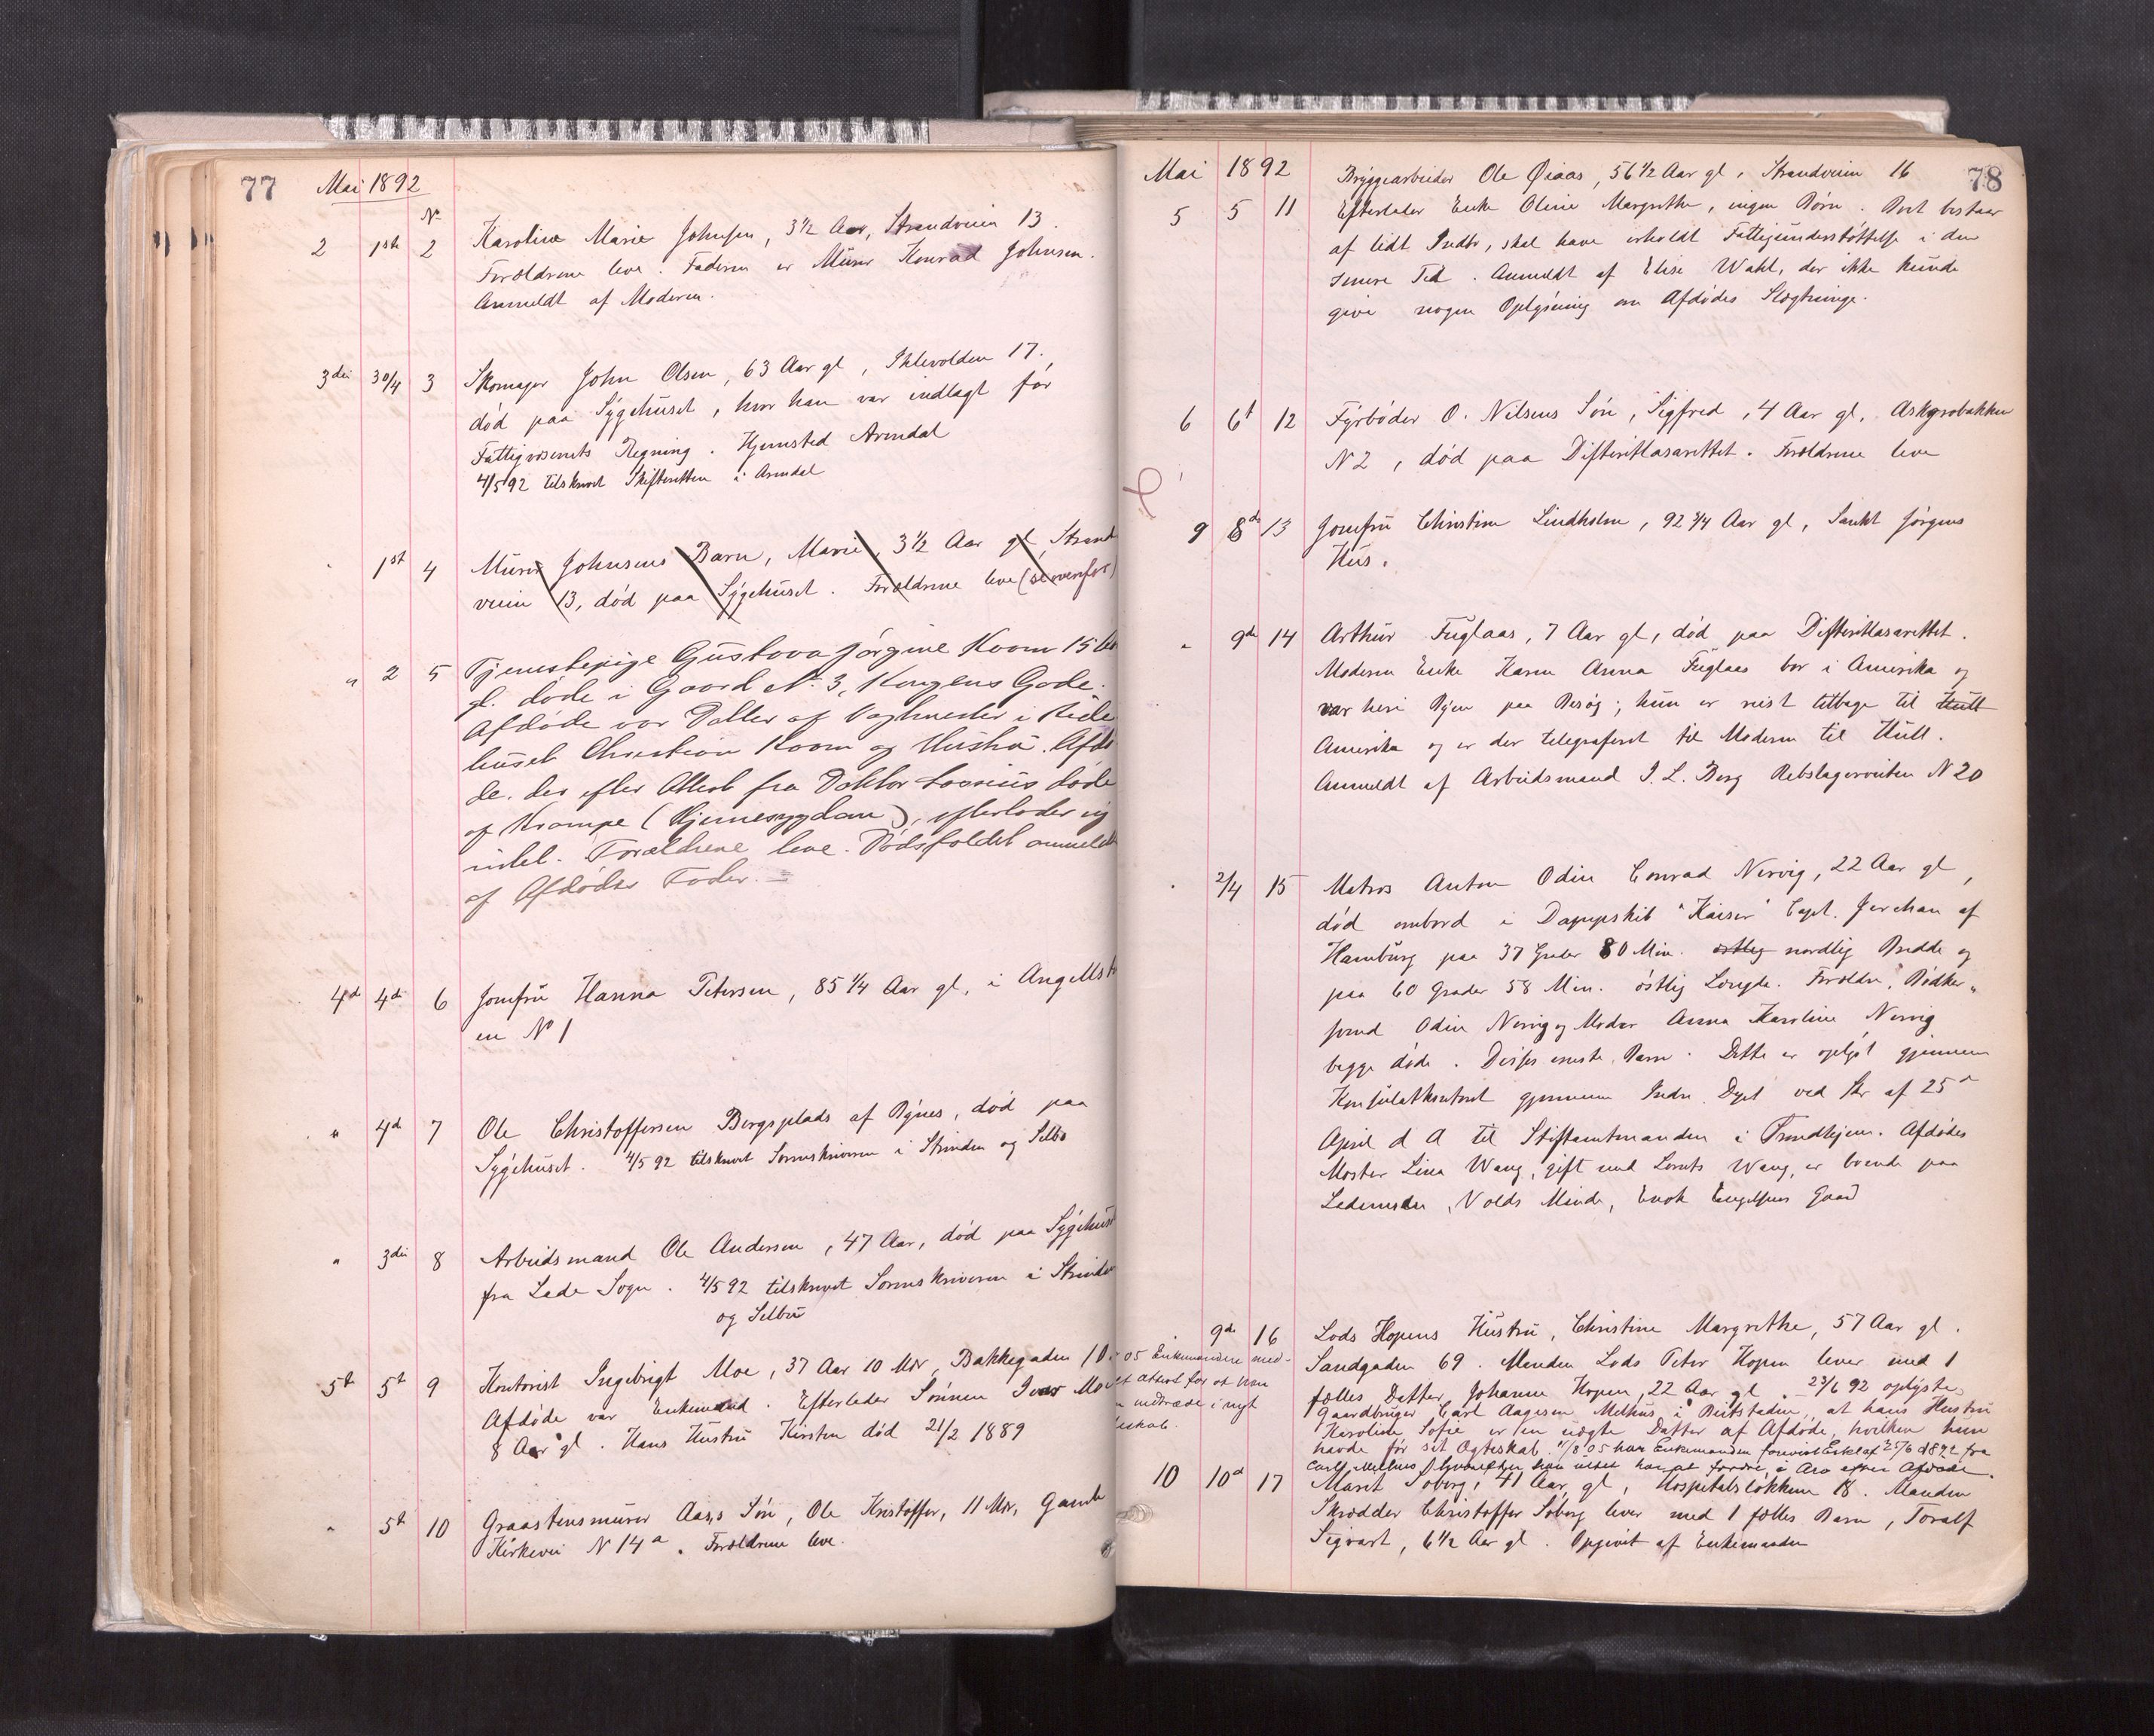 77 Mai 1892
No
2 1ste 2 Karoline Marie Johnsen, 3½ Aar, Strandveien 13.
Forældrene leve. Faderen er Murer Konrad Johnsen.
Anmeldt af Moderen.
3die 30/4 3 Skomager John Olsen, 63 Aar gl, Ihlevolden 17.,
død paa Sygehuset, hvor han var indlagt for
Fattigvæsenets Regning. Hjemsted Arendal
4/5 92 tilskrevet Skifteretten i Arendal
1st 4 Murer Johnsens Barn, Marie, 3½ Aar gl, Strand
veien 13, død paa Sygehuset. Forældrene leve (se ovenfor)
" 2 5 Tjenestepige Gustava Jørgine Koom 15 Aar
gl. døde i Gaard No 3, Kongens Gade.
Afdøde var Datter af Vagtmester i Ride
huset Christian Koom og Hustru. Afdø
de, der efter Attest fra Doktor Lossius døde
af Krampe (Hjernesygdom), efterlader sig
intet. Forældrene leve. Dødsfaldet anmeldt
af Afdødes Fader. =
4d 4de 6 Jomfru Hanna Petersen, 85 1/4 Aar gl, i Angellst
en No 1
" 4d 7 Ole Christoffersen Bergsplads af Bynes, død paa
Sygehuset. 4/5 92 tilskrevet Sorenskriveren i Strinden og Selbo
" 3die 8 Arbeidsmand Ole Andersen, 47 Aar, død paa Sygehuset
fra Lade Sogn. 4/5 92 tilskrevet Sorenskriveren i Strinden
og Selbu
5t 5t 9 Kontorist Ingebrigt Moe, 37 Aar 10 Mdr, Bakkegaden 10
Afdøde var Enkemand. Efterlader Sønnen Ivar Moe
8 Aar gl. Hans Hustru Kirsten død 21/2 1889
" 5t 10 Graastensmurer Aas,s Søn, Ole Kristoffer, 11 Mdr, Gamle
Kirkevei N 14 a. Forældrene leve.
Mai 1892 78
Bryggearbeider Ole Øiaas, 56 1/2 Aar gl, Strandveien 16
5 5 11 Efterlader Enke Oline Margrethe, ingen Børn. Boet bestaar
af lidt Indbo, skal have erholdt Fattigunderstøttelse i den
senere Tid. Anmeldt af Elise Wahl, der ikke kunde
give nogen Oplysning om Afdødes Slægtninge.
6 6t 12 Fyrbøder O. Nilsens Søn, Sigfred, 4 Aar gl,
N 2, død paa Difteritlasarettet. Forældrene leve
9 8de 13 Jomfru Christine Lindholm, 92 3/4 Aar gl, Sankt Jørgens
Hus.
" 9de 14 Arthur Fuglaas, 7 Aar gl, død paa Difteritlasarettet.
Moderen Enke Karen Anna Fuglaas bor i Amerika og
var heri Byen paa Besøg; hun er reist tilbage til Hull
Amerika og er der telegraferet til Moderen til Hull.
Anmeldt af Arbeidsmand I. L. Berg Rebslagerveiten N 20
2/4 15 Matros Anton Odin Conrad Nervig, 22 Aar gl,
død ombord i Dampskib "Kaiser" Capt. Jerchau af
Hamburg paa 37 Grader 80 Min. østlig nordlig Bredde og
paa 60 Grader 58 Min. østlig Længde. Forældre, Bødker
svend Odin Nervig og Moder Anna Karoline Nervig
begge døde. Disses eneste Barn. Dette er oplyst gjennem
Konsulatkontoret gjennem Indre Dept ved Skr af 25de
April d A til Stiftamtmanden i Trondhjem. Afdødes
Moster Lina Wang, gift med Lorents Wang, er boende paa
Lademoen, Volds Minde, Enok Engelsens Gaard
9de 16 Lods Hopens Hustru, Christine Margrethe, 57 Aar gl.
Sandgaden 69. Manden Lods Peter Hopen lever med 1
fælles Datter, Johanne Hopen, 22 Aar gl. 23/6 92 oplyste
Gaardbruger Carl Aagesen Melhus i Beitstaden, at hans Hustru
Karoline Sofie er en uægte Datter af Afdøde, hvilken hun
havde før sit Ægteskab. 11/8 05 har Enkemanden forevist Erkl af 25/6 1892 fra
Carl Melhus, hvorefter han intet har at fordre i Arv efter Afdøde.
05 Enkemanden med-
Attest for at kun
indtræde i nyt
teskab.
10 10de 17 Marit Soberg, 41 Aar gl, Hospitalsløkken 18. Manden
Skrædder Christoffer Soberg lever med 1 fælles Barn, Toralf
Sigvart, 6 1/2 Aar gl. Opgivet af Enkemanden